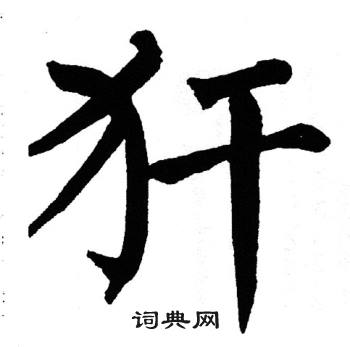 犴
词典网